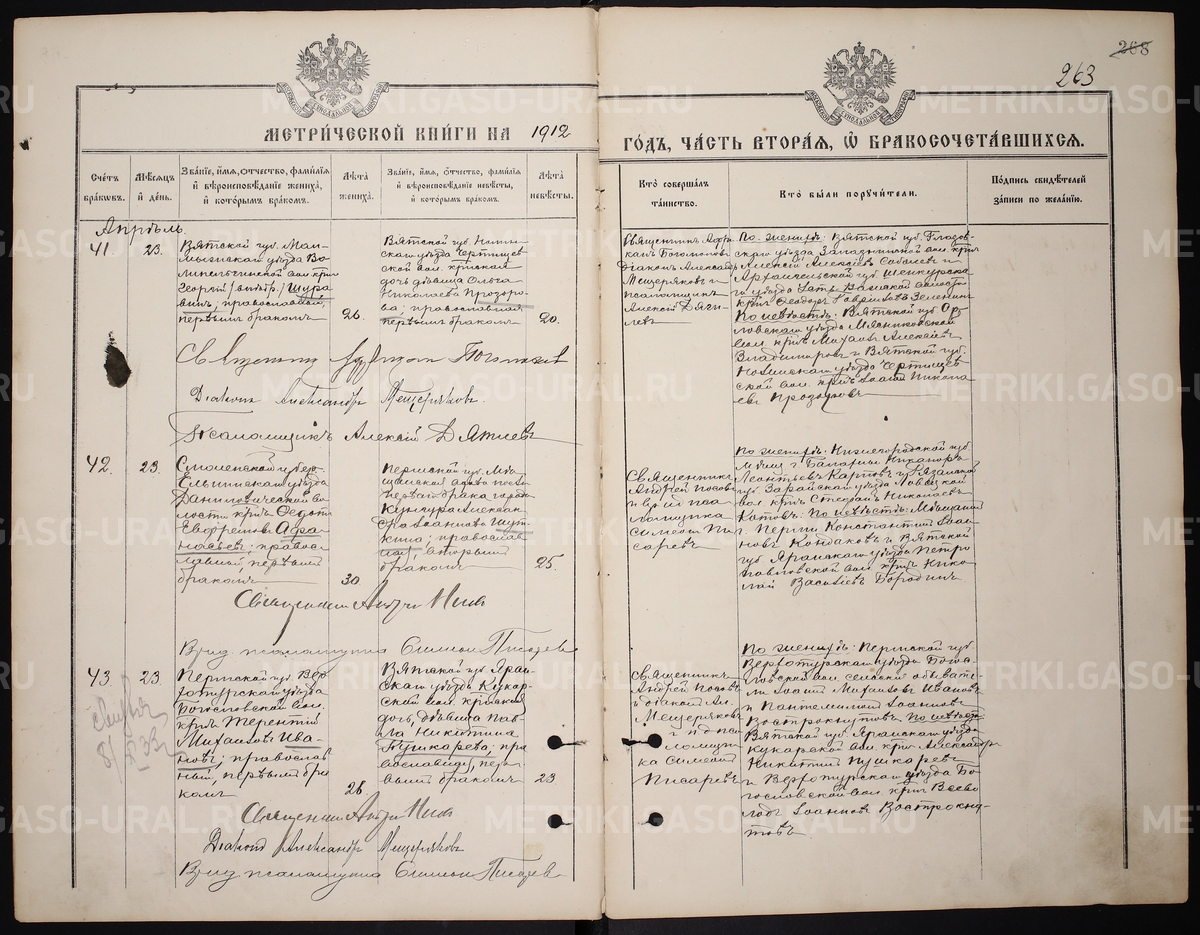 268
263
МЕТРИ́ЧЕСКОЙ КНИ́ГИ НА 1912
ГО́ДЪ, ЧА́СТЬ ВТОРА́Я, Ѿ БРАКОСОЧЕТА́ВШИХСЯ.
Сче́тъ бра́ковъ.
Мѣ́сяцъ и҆ де́нь.
Зва́нїе, и҆́мя, ѻ҆́тчество, фамѝлїя и҆ вѣроисповѣ́данїе жениха̀, и҆ кото́рымъ бра́комъ.
Лѣ́та жениха̀.
Зва́нїе, и҆́мя, ѻ҆́тчество, фамѝлїя и҆ вѣроисповѣ́данїе невѣ́сты, и҆ кото́рымъ бра́комъ.
Лѣ́та невѣ́сты.
Кто̀ соверша́лъ та́инство.
Кто̀ бы́ли порꙋчи́тели.
По́дпись свидѣ́телей за́писи по жела́нїю.
Апрѣль
41
23.
Вятской губ. Мал-
мыжскаго уѣзда
вол. крест.
Георгій
православный,
первымъ бракомъ
26.
Вятской губ. Нолин-
скаго уѣзда
ской вол. крестьян.
дочь дѣвица Ольга
Николаева Прозоро-
ва; православная
первымъ бракомъ
20.
Священникъ
Богомоловъ
Діаконъ Александръ
Мещеряковъ и
псаломщикъ
Алексій Дяги-
левъ
По женихѣ: Вятской губ. Глазов-
скаго уѣзда вол. крест.
Алексій Алексѣевъ и
Архангельской губ. Шенкурска-
го уѣзда волости
крест. Ѳеодоръ Гавриловъ Зеленинъ
По невѣстѣ: Вятской губ. Ор-
ловскаго уѣзда
вол. крест. Михаилъ Алексѣевъ
Владимировъ и Вятской губ.
Нолинскаго уѣзда
ской вол. крест. Іоаннъ Никола-
евъ Прозоровъ
Священникъ
Діаконъ Александръ Мещеряковъ.
Псаломщикъ Алексій Дягилевъ
42.
23.
Смоленской губер.
Ельнинскаго уѣзда
Даниловичской во-
лости крест. Ѳедотъ
Евфремовъ Афа-
насьевъ; правос-
лавный, первымъ
бракомъ
30
Пермской губ. Мѣ-
щанская вдова послѣ
перваго брака горо-
да Кунгура Алексан-
дра Іоаннова
православ-
ная, вторымъ
бракомъ
25.
Священникъ
Андрей
и врид пса-
ломщика
Симеонъ Пи-
саревъ
По женихѣ: Нижегородской губ.
мѣщ. г. Балахны Никаноръ
Леонтьевъ Карповъ и Рязанской
губ. Зарайскаго уѣзда Ловецкой
вол. крест. Стефанъ Николаевъ
Котовъ. По невѣстѣ: Мѣщанинъ
г. Перми Константинъ Іоан-
новъ Кондаковъ и Вятской
губ. Яранскаго уѣзда Петро-
павловской вол. крест. Нико-
лай Васильевъ Бородинъ
Священникъ Андрей
Врид псаломщика Симеонъ Писаревъ
43
23
Пермской губ. Вер-
хотурскаго уѣзда
Богословской вол.
крест. Терентій
Михаиловъ Ива-
новъ; православ-
ный, первымъ бра-
комъ
26
Вятской губ. Яран-
скаго уѣзда Кукар-
ской вол. крестьян.
дочь, дѣвица Пав-
ла Никитина
Пушкарева, пра-
вославная, пер-
вымъ бракомъ
23
Священникъ
Андрей
и діаконъ Ал.
Мещеряковъ
и врид пса-
ломщи-
ка Симеонъ
Писаревъ
По женихѣ: Пермской губ.
Верхотурскаго уѣзда Бого-
словской вол. сельскіе обывате-
ли Іоаннъ Михаиловъ Ивановъ
и Пантелимонъ Іоанновъ
Вострокнутовъ. По невѣстѣ:
Вятской губ. Яранскаго уѣзда
Кукарской вол. крест. Александръ
Никитинъ Пушкаревъ
и Верхотурскаго уѣзда Бо-
гословской вол. крест. Всево-
лодъ Іоанновъ Вострокну-
товъ
Священникъ Андрей
Діаконъ Александръ Мещеряковъ
Врид псаломщика Симеонъ Писаревъ
METRIKI.GASO-URAL.RU